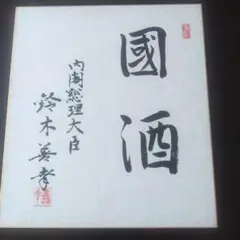 國酒
内閣総理大臣
鈴木善幸